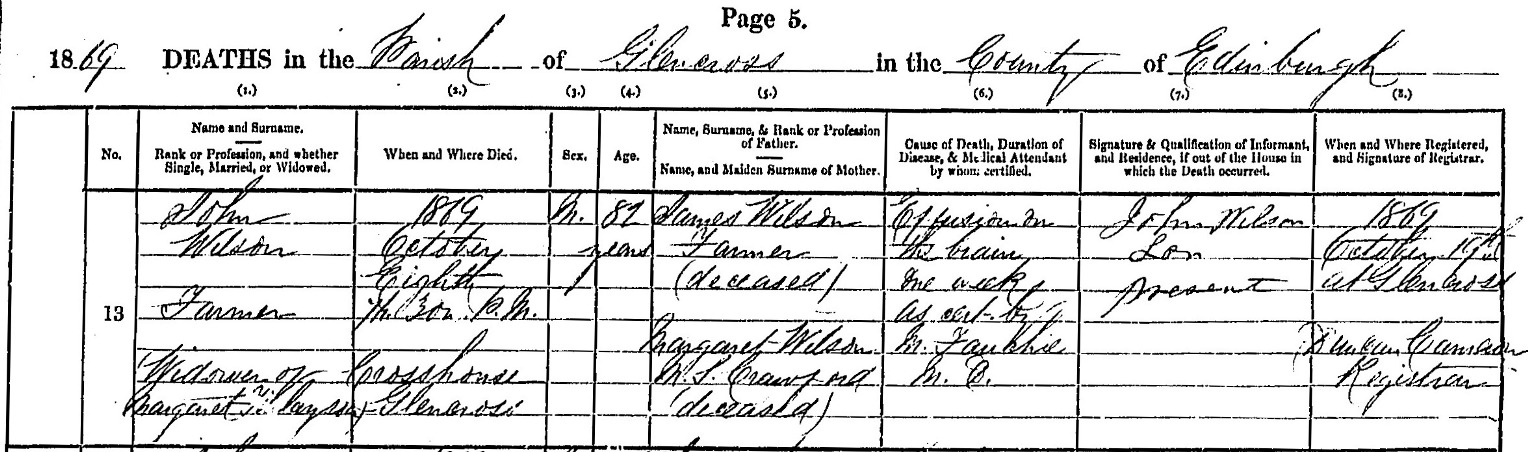 Page 5.
1869 DEATHS in the Parish of Glencross in the County of Edinburgh
(1.) (2.) (3.) (4.) (5.) (6.) (7.) (8.)
No.
Name and Surname.
Rank or Profession, and whether
Single, Married, or Widowed.
When and Where Died.
Sex.
Age.
Name, Surname, & Rank or Profession
of Father.
Name, and Maiden Surname of Mother.
Cause of Death, Duration of
Disease, & Medical Attendant
by whom certified.
Signature & Qualification of Informant,
and Residence, if out of the House in
which the Death occurred.
When and Where Registered,
and Signature of Registrar.
13
John
Wilson
Farmer
Widower of
Margaret
1869
October
Eighth
P.M.
Crosshouse
Glencross
M.
years
James Wilson
Farmer
(deceased)
Margaret Wilson
M. S. Crawford
(deceased)
Effusion on
the brain
One week
As cert. by
M.D.
John Wilson
Son
present
1869
October
at Glencross
Duncan Cameron
Registrar